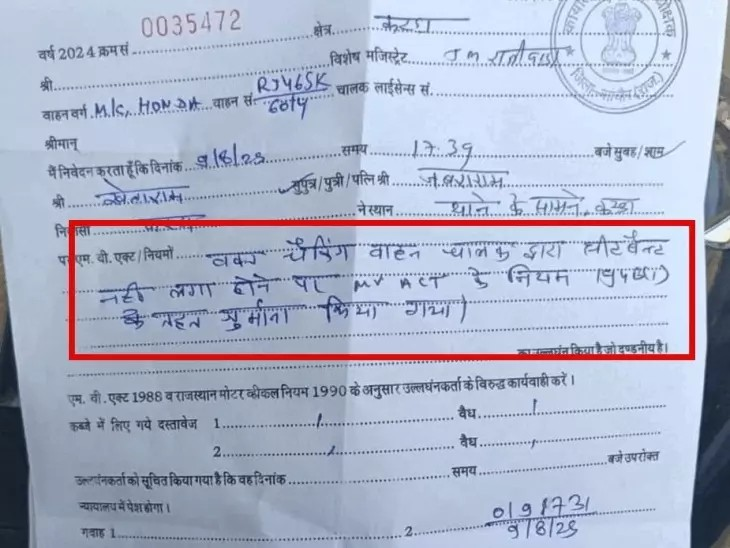 0035472
वर्ष 2024 क्रम सं. क्षेत्र करडा
विशेष मजिस्ट्रेट J M रानीवाडा
श्री
वाहन वर्ग M/C, HONDA वाहन सं. RJ46SK 6014 चालक लाईसेन्स सं.
श्रीमान्
मैं निवेदन करता हूँ कि दिनांक 9/8/25 समय 17.39 बजे सुबह/शाम
श्री सुपुत्र/पुत्री/पत्नि श्री जबराराम
निवासी करडा ने स्थान थाने के सामने, करडा
पर एम. वी. एक्ट/नियमों वक्त चैकिंग वाहन चालक द्वारा सीटबैल्ट
नही लगा होने पर MV ACT के नियम 194B(1)
के तहत जुर्माना किया गया।
का उल्लंघन किया है जो दण्डनीय है।
एम. वी. एक्ट 1988 व राजस्थान मोटर व्हीकल नियम 1990 के अनुसार उल्लघंनकर्ता के विरुद्ध कार्यवाही करें।
कब्जे में लिए गये दस्तावेज 1. वैध
2. वैध
उल्लंघनकर्ता को सूचित किया गया है कि वह दिनांक समय बजे उपरोक्त
न्यायालय में पेश होगा।
गवाह 1 2.
9/8/25